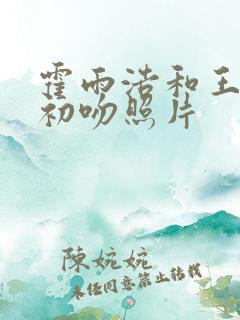 霍雨浩和王
初吻照片
陳婉婉
未经同意禁止转载